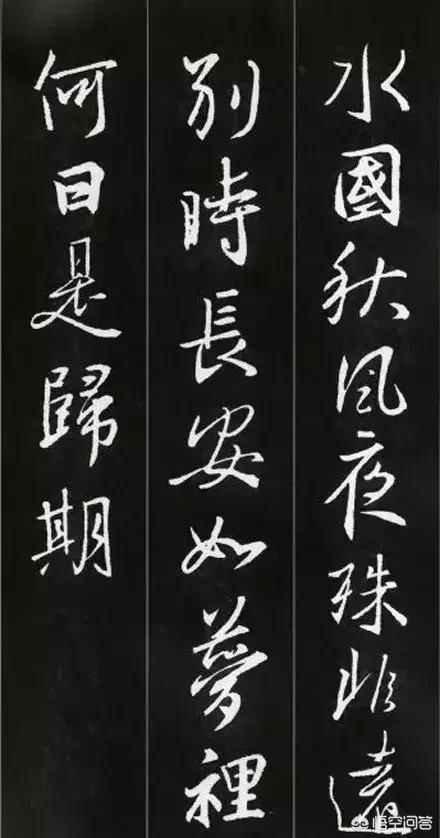 水國秋风夜殊非遠
別時長安如夢裡
何日是歸期
悟空问答